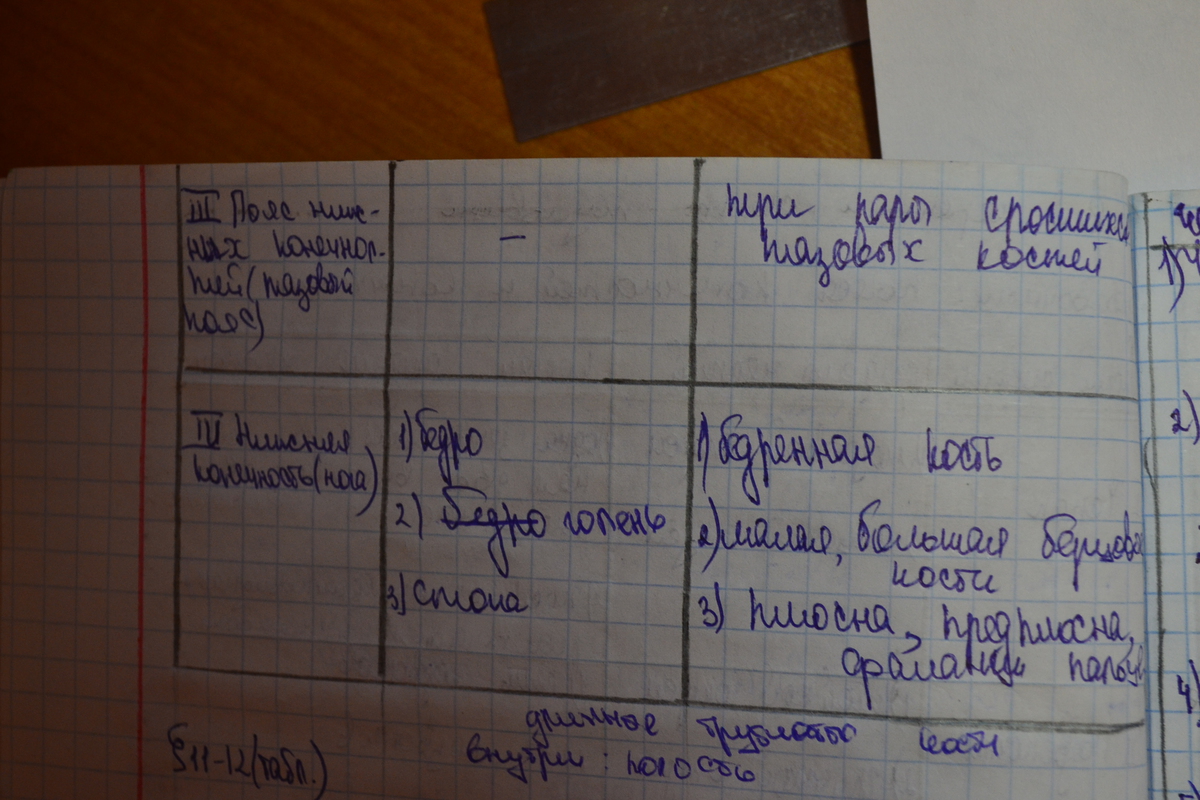 III Пояс ниж-
них конечнос-
тей (тазовый
пояс)
–
три пары сросшихся
тазовых костей
IV Нижняя
конечность (нога)
1) бедро
2) бедро голень
3) стопа
1) бедренная кость
2) малая, большая берцовая
кости
3) плюсна, предплюсна,
фаланги пальцев
длинные трубчатые кости
внутри: полость
§ 11-12 (табл.)
1)
2)
4)